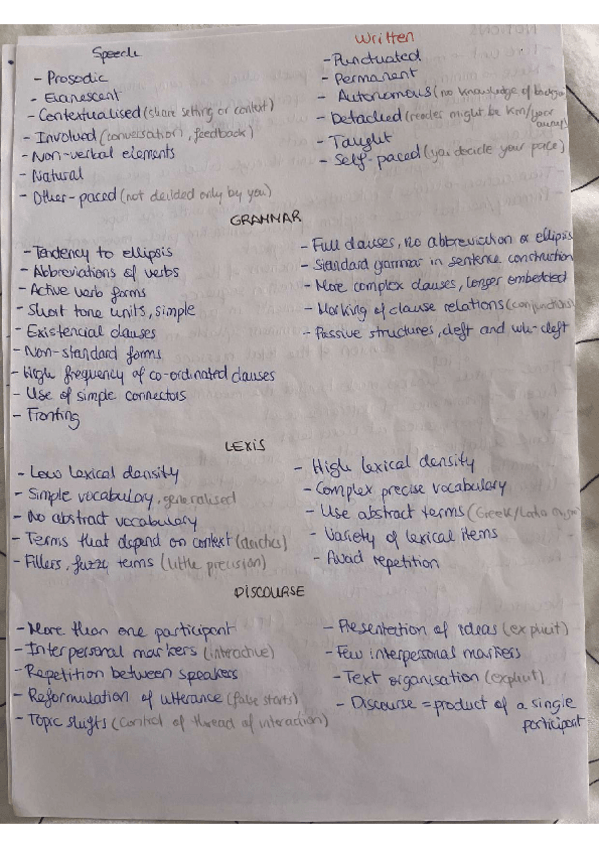 Speech
- Prosodic
- Evanescent
- Contextualised (share setting or context)
- Involved (conversation, feedback)
- Non-verbal elements
- Natural
- Other-paced (not decided only by you)
Written
- Punctuated
- Permanent
- Autonomous (no knowledge of
- Detached (reader might be km/year away)
- Taught
- Self-paced (you decide your pace)
GRAMMAR
- Tendency to ellipsis
- Abbreviations of verbs
- Active verb forms
- Short tone units, simple
- Existencial clauses
- Non-standard forms
- High frequency of co-ordinated clauses
- Use of simple connectors
- Fronting
- Full clauses, no abbreviation or ellipsis
- Standard grammar in sentence construction
- More complex clauses, longer embedded
- Marking of clause relations (conjunctions)
- Passive structures, cleft and wh-cleft
LEXIS
- Low lexical density
- Simple vocabulary, generalised
- No abstract vocabulary
- Terms that depend on context (deictics)
- Fillers, fuzzy terms (little precision)
- High lexical density
- Complex precise vocabulary
- Use abstract terms (Greek/Latin
- Variety of lexical items
- Avoid repetition
DISCOURSE
- More than one participant
- Interpersonal markers (interactive)
- Repetition between speakers
- Reformulation of utterance (false starts)
- Topic shifts (control of thread of interaction)
- Presentation of ideas (explicit)
- Few interpersonal markers
- Text organisation (explicit)
- Discourse = product of a single
participant